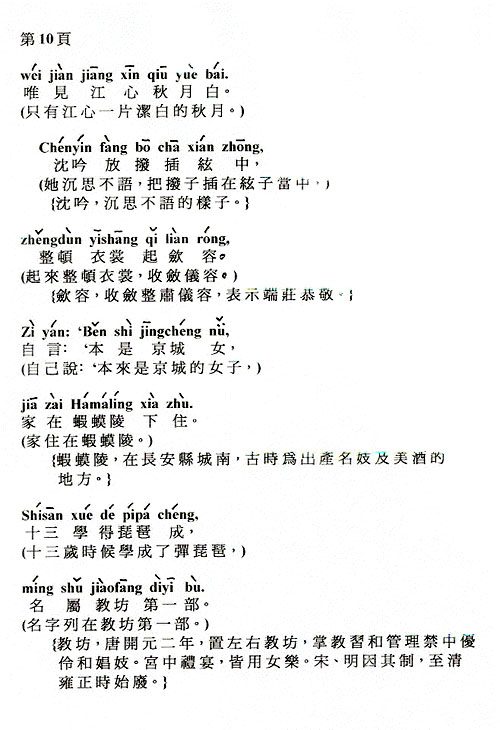 第10頁
wéi jiàn jiāng xīn qiū yuè bái.
唯見江心秋月白。
(只有江心一片潔白的秋月。)
Chényín fàng bō chā xián zhōng,
沈吟放撥插絃中，
(她沉思不語，把撥子插在絃子當中，)
{沈吟，沉思不語的樣子。}
zhěngdùn yīshāng qǐ liàn róng,
整頓衣裳起斂容。
(起來整頓衣裳，收斂儀容。)
{斂容，收斂整肅儀容，表示端莊恭敬。}
Zì yán: ‘Běn shì jīngchéng nǚ,
自言：‘本是京城女，
(自己說：‘本來是京城的女子，)
jiā zài Hámálíng xià zhù.
家在蝦蟆陵下住。
(家住在蝦蟆陵。)
{蝦蟆陵，在長安縣城南，古時爲出產名妓及美酒的
地方。}
Shísān xué dé pípá chéng,
十三學得琵琶成，
(十三歲時候學成了彈琵琶，)
míng shǔ jiàofāng dìyī bù.
名屬教坊第一部。
(名字列在教坊第一部。)
{教坊，唐開元二年，置左右教坊，掌教習和管理禁中優
伶和娼妓。宮中禮宴，皆用女樂。宋、明因其制，至清
雍正時始廢。}